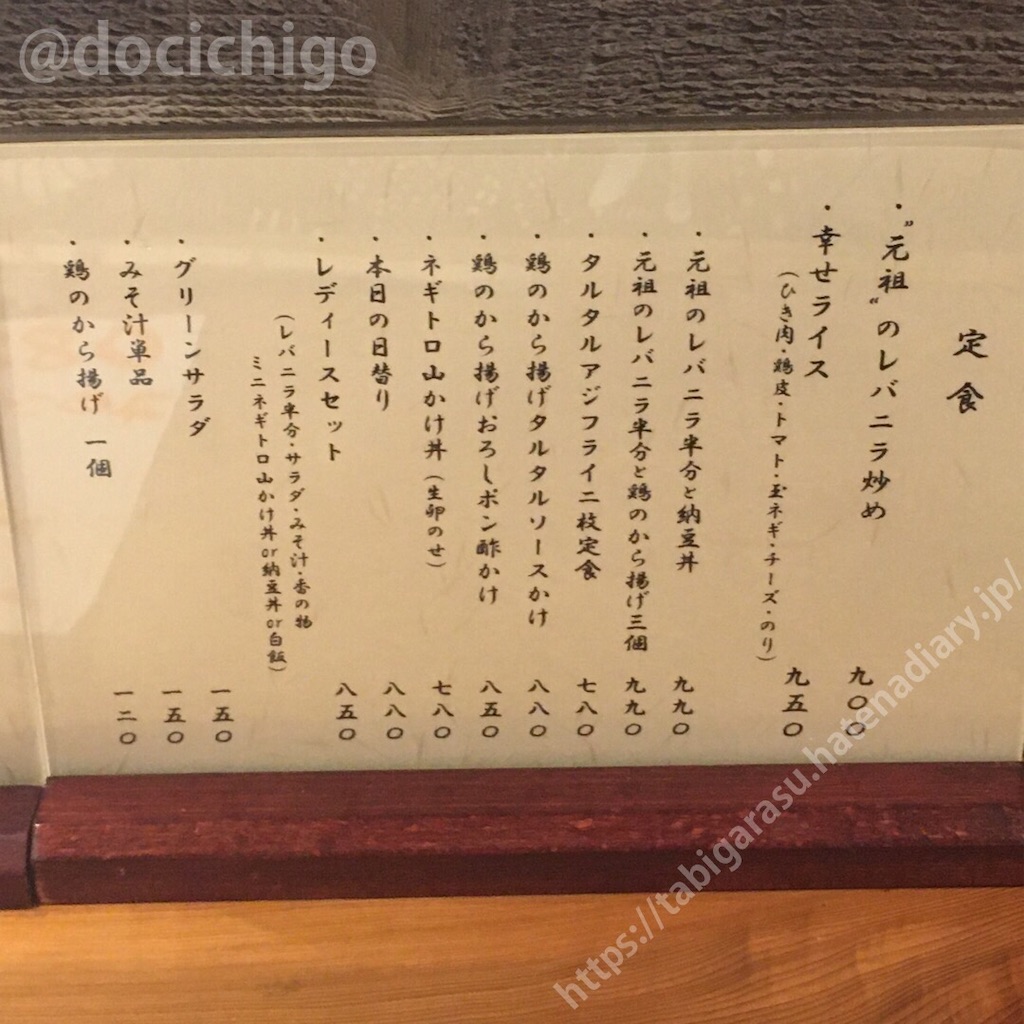 @docichigo
定食
・"元祖"のレバニラ炒め 九〇〇
・幸せライス 九五〇
（ひき肉・鶏皮・トマト・玉ネギ・チーズ・のり）
・元祖のレバニラ半分と納豆丼 九九〇
・元祖のレバニラ半分と鶏のから揚げ三個 九九〇
・タルタルアジフライ二枚定食 七八〇
・鶏のから揚げタルタルソースかけ 八八〇
・鶏のから揚げおろしポン酢かけ 八五〇
・ネギトロ山かけ丼（生卵のせ） 七八〇
・本日の日替り 八八〇
・レディースセット 八五〇
（レバニラ半分・サラダ・みそ汁・香の物
ミニネギトロ山かけ丼or納豆丼or白飯）
・グリーンサラダ 一五〇
・みそ汁単品 一五〇
・鶏のから揚げ 一個 一二〇
https://tabigarasu.hatenadiary.jp/